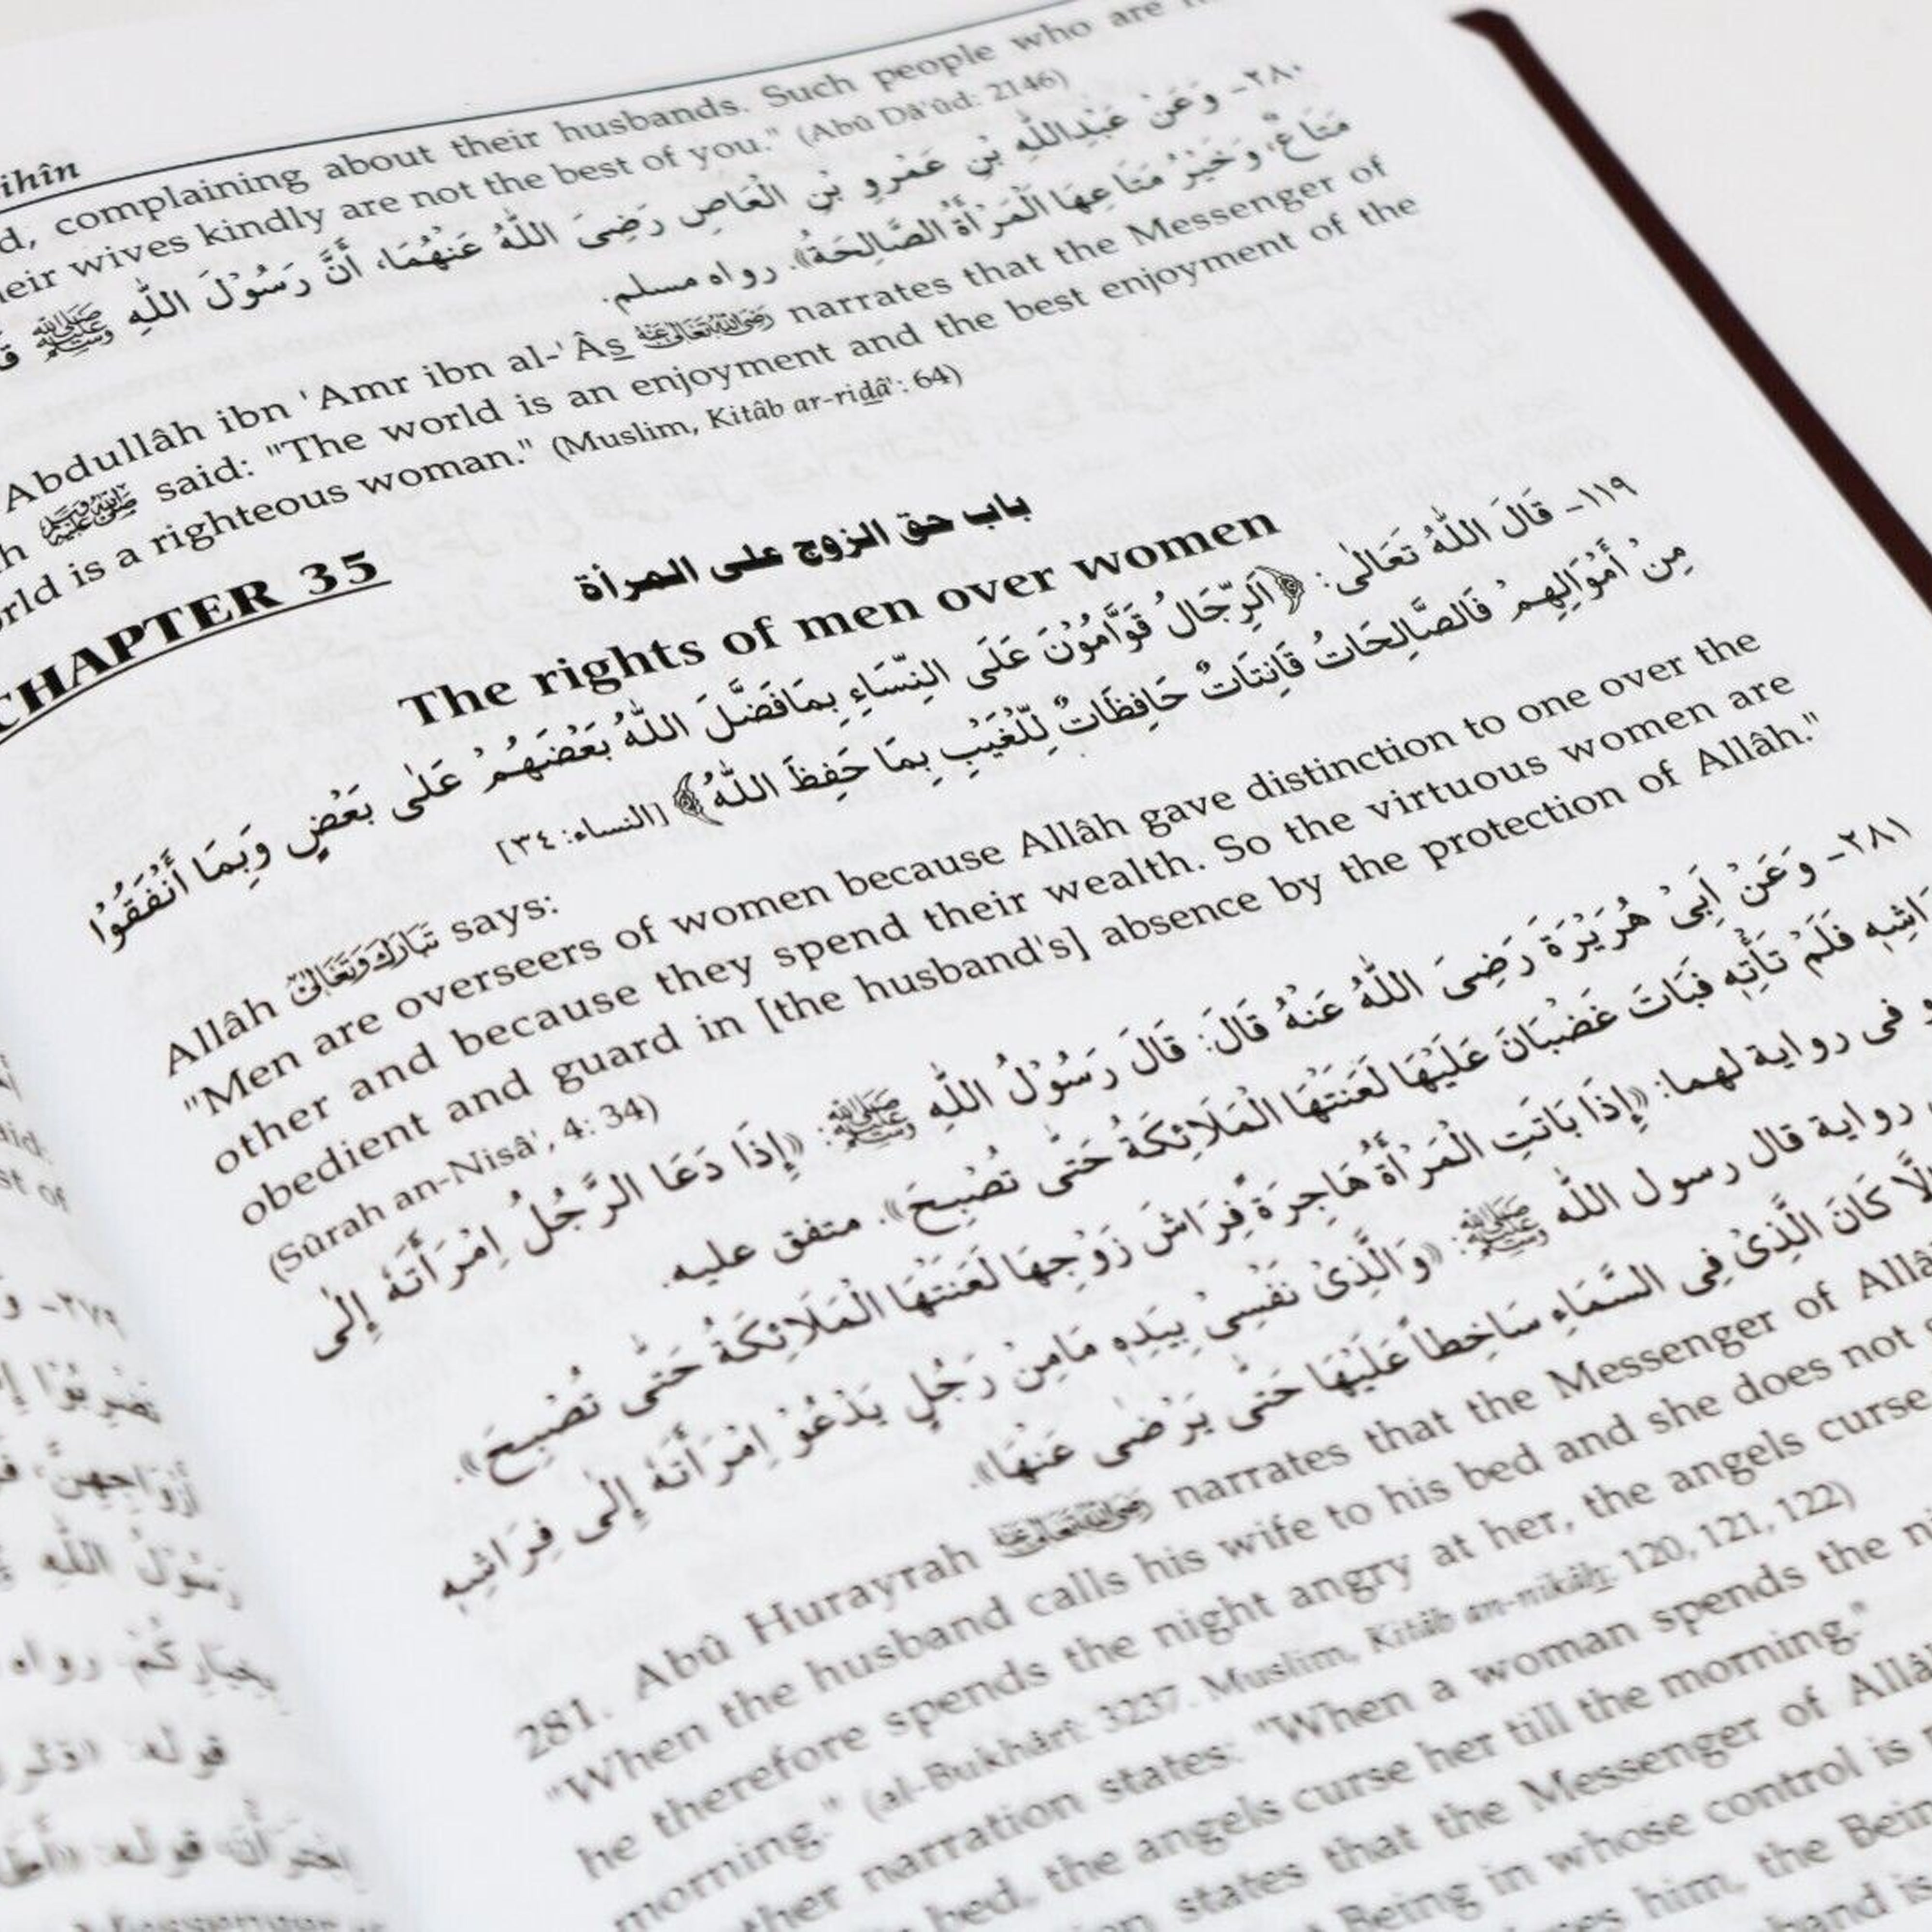 ihîn
d, complaining about their husbands. Such people who are
eir wives kindly are not the best of you." (Abû Dâ'ûd: 2146)
٢٨٠- وَعَنْ عَبْدِاللّٰهِ بْنِ عَمْرِو بْنِ الْعَاصِ رَضِىَ اللّٰهُ عَنْهُمَا، أَنَّ رَسُوْلَ اللّٰهِ ﷺ
مَتَاعٌ، وَخَيْرُ مَتَاعِهَا الْمَرْأَةُ الصَّالِحَةُ». رواه مسلم.
Abdullâh ibn 'Amr ibn al-'Âs رضي الله تعالى عنه narrates that the Messenger of
h ﷺ said: "The world is an enjoyment and the best enjoyment of the
orld is a righteous woman." (Muslim, Kitâb ar-ridâ': 64)
CHAPTER 35
باب حق الزوج على المرأة
The rights of men over women
١١٩- قَالَ اللّٰهُ تَعَالٰى: ﴿اَلرِّجَالُ قَوَّامُوْنَ عَلَى النِّسَاءِ بِمَافَضَّلَ اللّٰهُ بَعْضَهُمْ عَلٰى بَعْضٍ وَبِمَا أَنْفَقُوْا
مِنْ أَمْوَالِهِمْ فَالصَّالِحَاتُ قَانِتَاتٌ حَافِظَاتٌ لِّلْغَيْبِ بِمَا حَفِظَ اللّٰهُ﴾ [النساء: ٣٤]
Allâh تبارك وتعالى says:
"Men are overseers of women because Allâh gave distinction to one over the
other and because they spend their wealth. So the virtuous women are
obedient and guard in [the husband's] absence by the protection of Allâh."
(Sûrah an-Nisâ', 4: 34)
٢٨١- وَعَنْ أَبِىْ هُرَيْرَةَ رَضِىَ اللّٰهُ عَنْهُ قَالَ: قَالَ رَسُوْلُ اللّٰهِ ﷺ: «إِذَا دَعَا الرَّجُلُ اِمْرَأَتَهُ إِلٰى
فَلَمْ تَأْتِهِ فَبَاتَ غَضْبَانَ عَلَيْهَا لَعَنَتْهَا الْمَلَائِكَةُ حَتّٰى تُصْبِحَ». متفق عليه.
فى رواية لهما: «إِذَا بَاتَتِ الْمَرْأَةُ هَاجِرَةً فِرَاشَ زَوْجِهَا لَعَنَتْهَا الْمَلَائِكَةُ حَتّٰى تُصْبِحَ».
رواية قال رسول الله ﷺ: «وَالَّذِىْ نَفْسِىْ بِيَدِهِ مَامِنْ رَجُلٍ يَدْعُوْ اِمْرَأَتَهُ إِلٰى فِرَاشِهِ
كَانَ الَّذِىْ فِى السَّمَاءِ سَاخِطاً عَلَيْهَا حَتّٰى يَرْضٰى عَنْهَا».
281. Abû Hurayrah رضي الله تعالى عنه narrates that the Messenger of Allâ
"When the husband calls his wife to his bed and she does not
he therefore spends the night angry at her, the angels curse
morning." (al-Bukhârî: 3237. Muslim, Kitâb an-nikâh: 120, 121, 122)
ther narration states: "When a woman spends the
bed, the angels curse her till the morning."
states that the Messenger of Allâ
Being in whose control is
him, the Bein